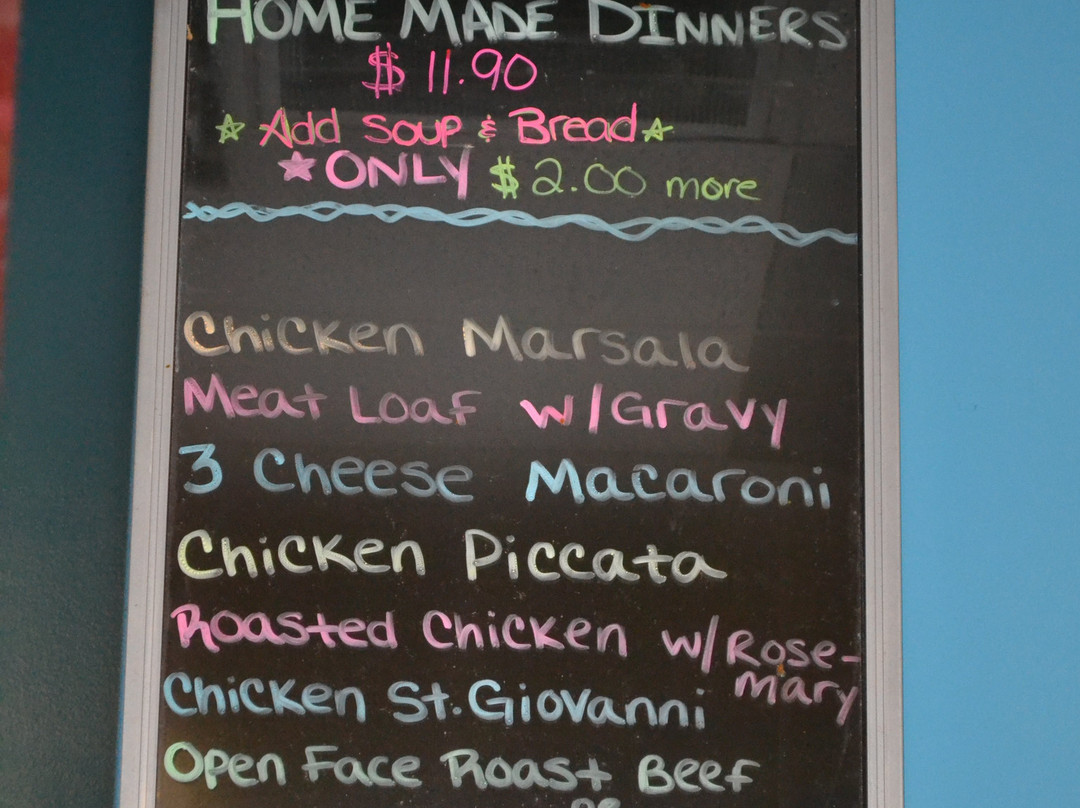 HOME MADE DINNERS
$ 11.90
☆ Add Soup & Bread ☆
★ ONLY $ 2.00 more
Chicken Marsala
Meat Loaf w/Gravy
3 Cheese Macaroni
Chicken Piccata
Roasted Chicken w/Rose-
mary
Chicken St. Giovanni
Open Face Roast Beef